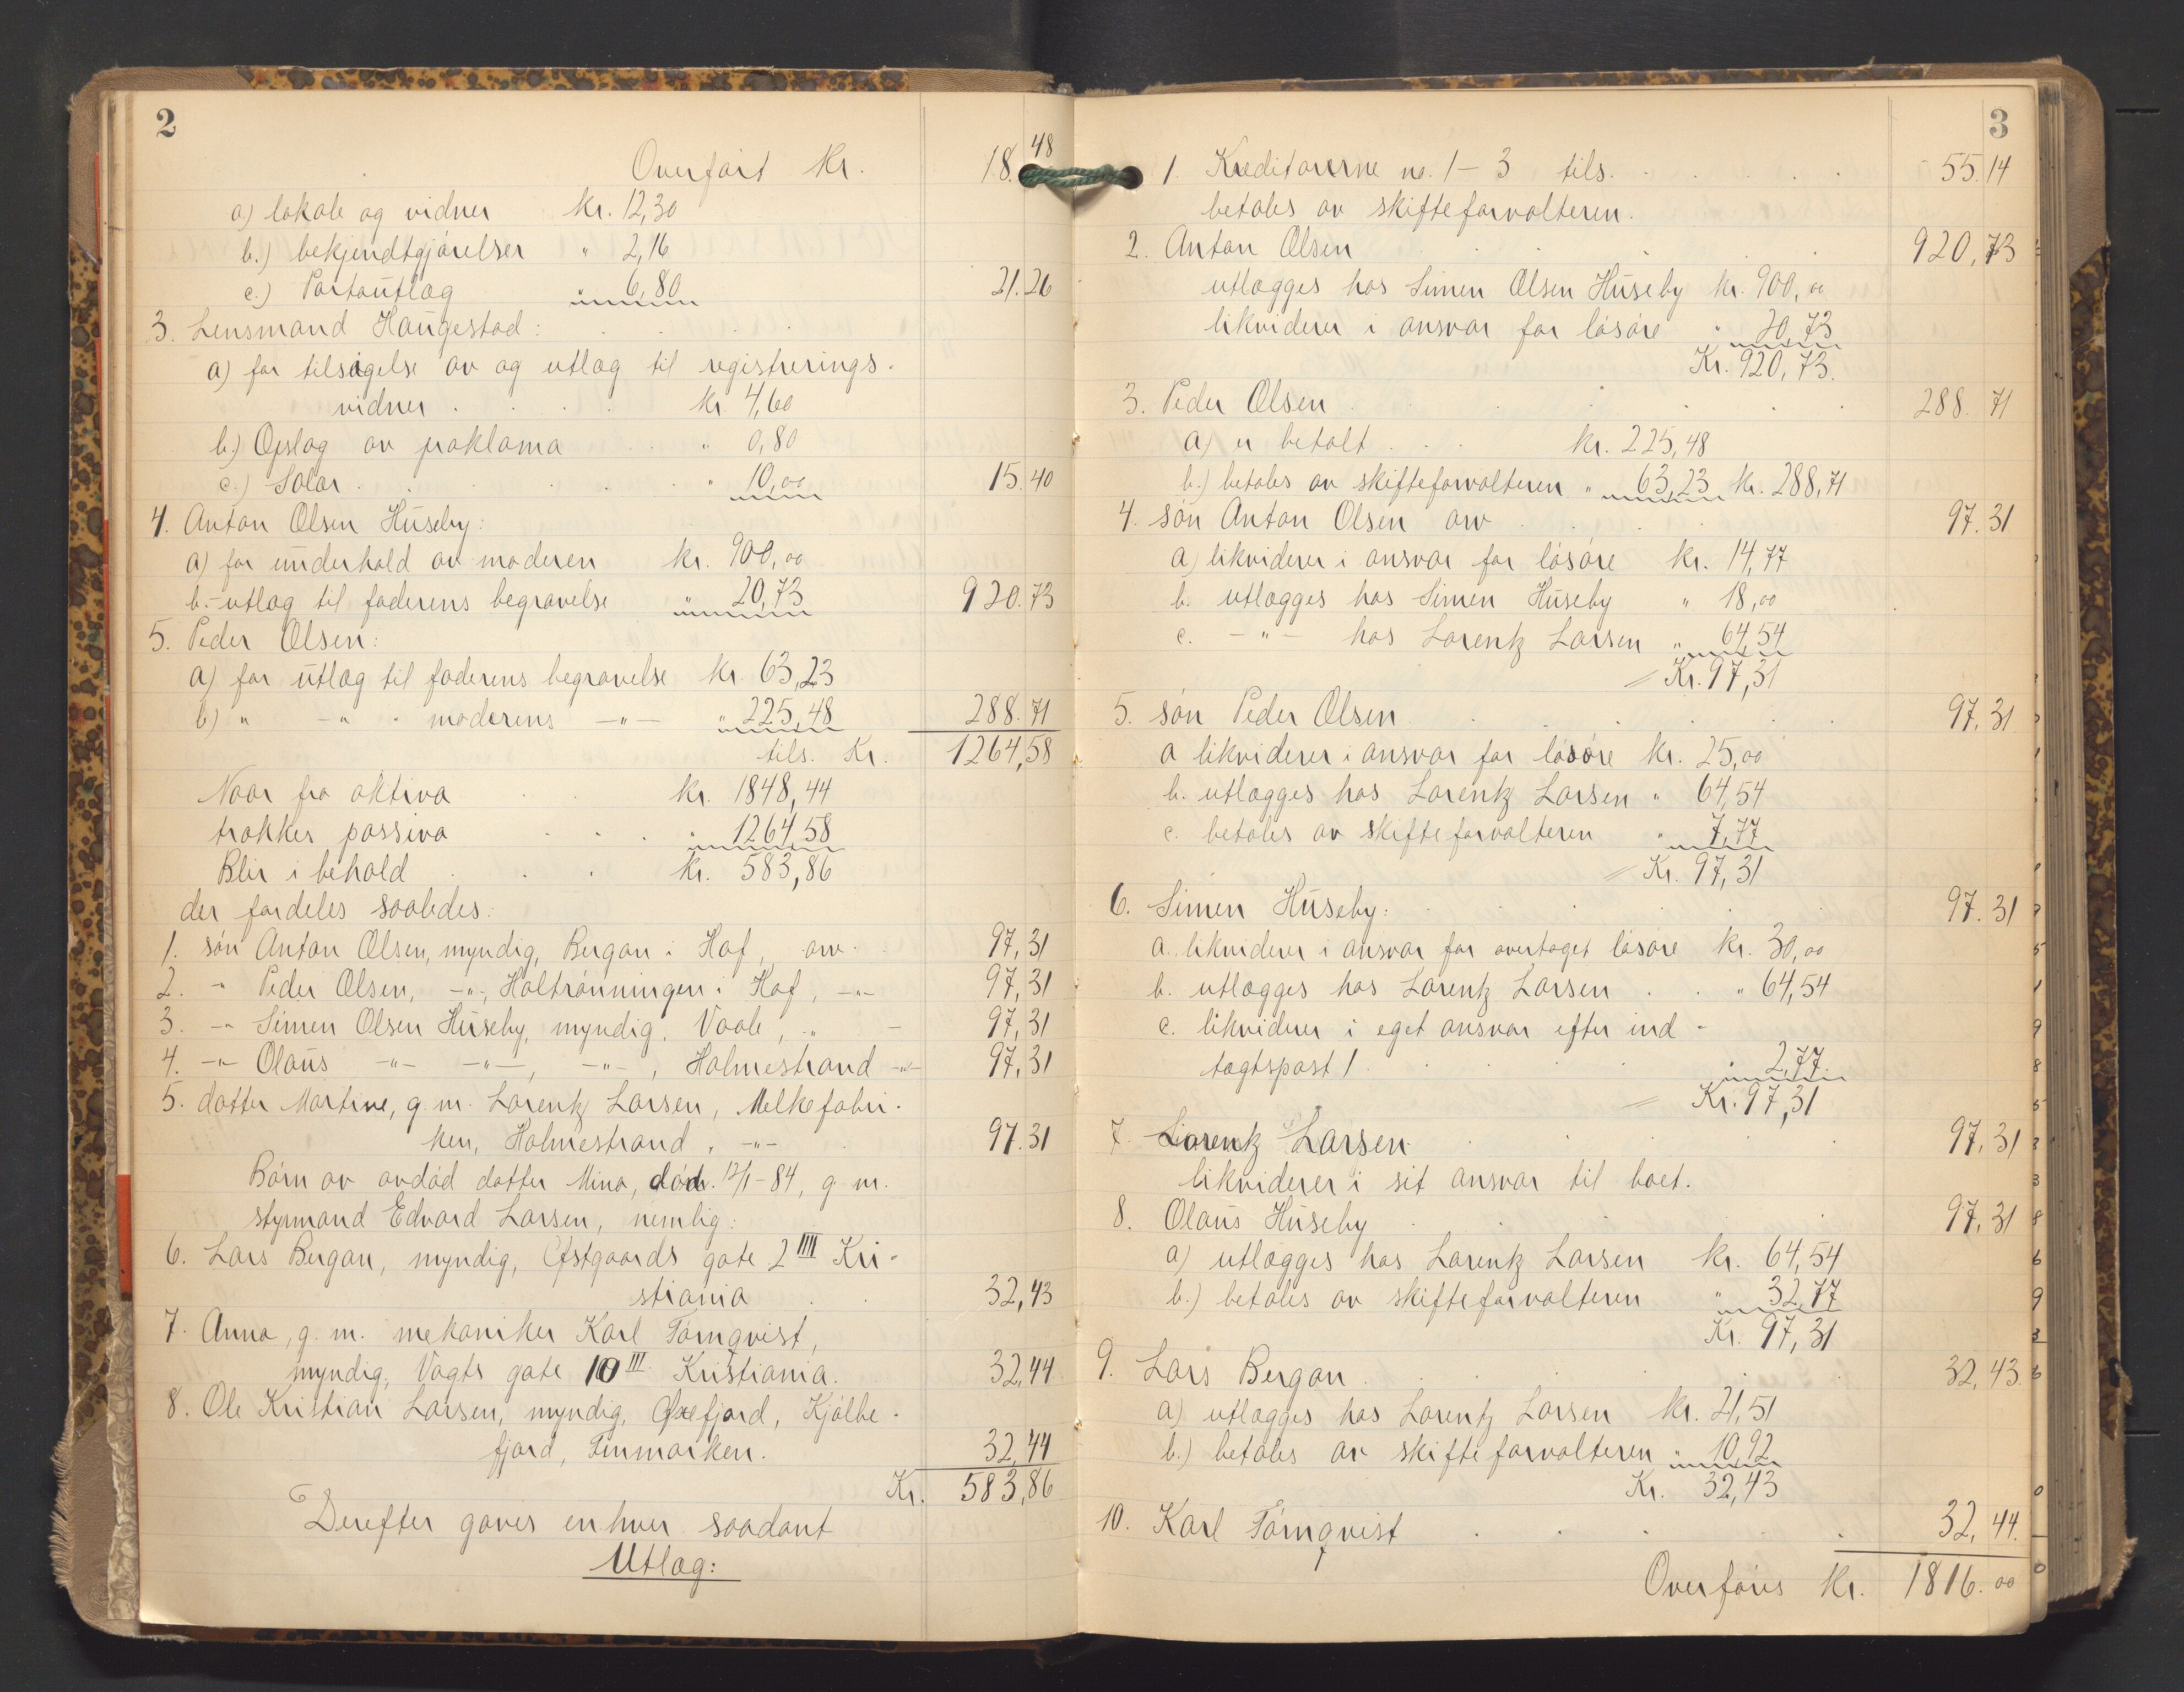 2
Overført Kr. 18.48
a) lokale og vidner kr. 12,30
b.) bekjendtgjørelser " 2,16
c.) Portoutlæg " 6,80 21.26
3. Lensmand Haugestad:
a) for tilsigelse av og utlæg til registrerings-
vidner . . . . kr. 4,60
b.) Opslag av proklama . . " 0,80
c.) Salær . . . . . " 10,00 15.40
4. Anton Olsen Huseby:
a) for underhold av moderen kr. 900,00
b.- utlæg til faderens begravelse " 20,73 920.73
5. Peder Olsen:
a) for utlæg til faderens begravelse kr. 63,23
b) " -"- " moderens -"- " 225,48 288.71
tils. Kr. 1264,58
Naar fra aktiva . . kr. 1848,44
trækkes passiva . . . " 1264,58
Blir i behold . . . kr. 583,86
der fordeles saaledes:
1. søn Anton Olsen, myndig, Bergan i Hof, arv . 97,31
2. -"- Peder Olsen, -"-, Holtrønningen i Hof, -"- 97,31
3. -"- Simen Olsen Huseby, myndig, Vaale, -"- - 97,31
4. -"- Olaus -"- -"-, -"-, Holmestrand -"- 97,31
5. datter Martine, g. m. Lorentz Larsen, Melkefabri-
ken, Holmestrand, -"- . 97.31
Børn av avdød datter Mina, død. 12/1-84, g. m.
styrmand Edvard Larsen, nemlig:
6. Lars Bergan, myndig, Ofstgaards gate 2 IIII Kri-
stiania . . 32,43
7. Anna, g. m. mekaniker Karl Törnqvist,
myndig, Vogts gate 10 III Kristiania. 32,44
8. Ole Kristian Larsen, myndig, Oxefjord, Kjølle-
fjord, Finmarken. 32,44
Kr. 583,86
Derefter gøres enhver saadant
Utlæg:
3
1. Kreditorerne no. 1-3 tils. . . . . 55.14
betales av skifteforvalteren.
2. Anton Olsen . . . . 920,73
utlægges hos Simen Olsen Huseby kr. 900,00
likviderer i ansvar for løsøre " 20,73
Kr. 920,73.
3. Peder Olsen . . . . . 288.71
a) er betalt . . . kr. 225,48
b.) betales av skifteforvalteren " 63,23 kr. 288,71
4. søn Anton Olsen arv . . . . 97.31
a) likviderer i ansvar for løsøre kr. 14,77
b. utlægges hos Simen Huseby " 18,00
c. -"- hos Lorentz Larsen " 64,54
Kr. 97,31
5. søn Peder Olsen . . . . 97.31
a likviderer i ansvar for løsøre kr. 25,00
b. utlægges hos Lorentz Larsen " 64,54
c. betales av skifteforvalteren " 7,77
Kr. 97,31
6. Simen Huseby: . . . . 97.31
a. likviderer i ansvar for overtaget løsøre kr. 30,00
b. utlægges hos Lorentz Larsen . . " 64,54
c. likviderer i eget ansvar efter ind-
tægtspost 1 . . . " 2,77.
Kr. 97,31
7. Lorentz Larsen . . . . 97,31
likviderer i sit ansvar til boet.
8. Olaus Huseby . . . . 97,31
a) utlægges hos Lorentz Larsen kr. 64,54
b.) betales av skifteforvalteren " 32,77
Kr. 97,31
9. Lars Bergan . . . . 32,43.
a) utlægges hos Lorentz Larsen kr. 21,51
b.) betales av skifteforvalteren " 10,92
Kr. 32,43
10. Karl Törnqvist . . . . 32,44.
Overføres kr. 1816.00